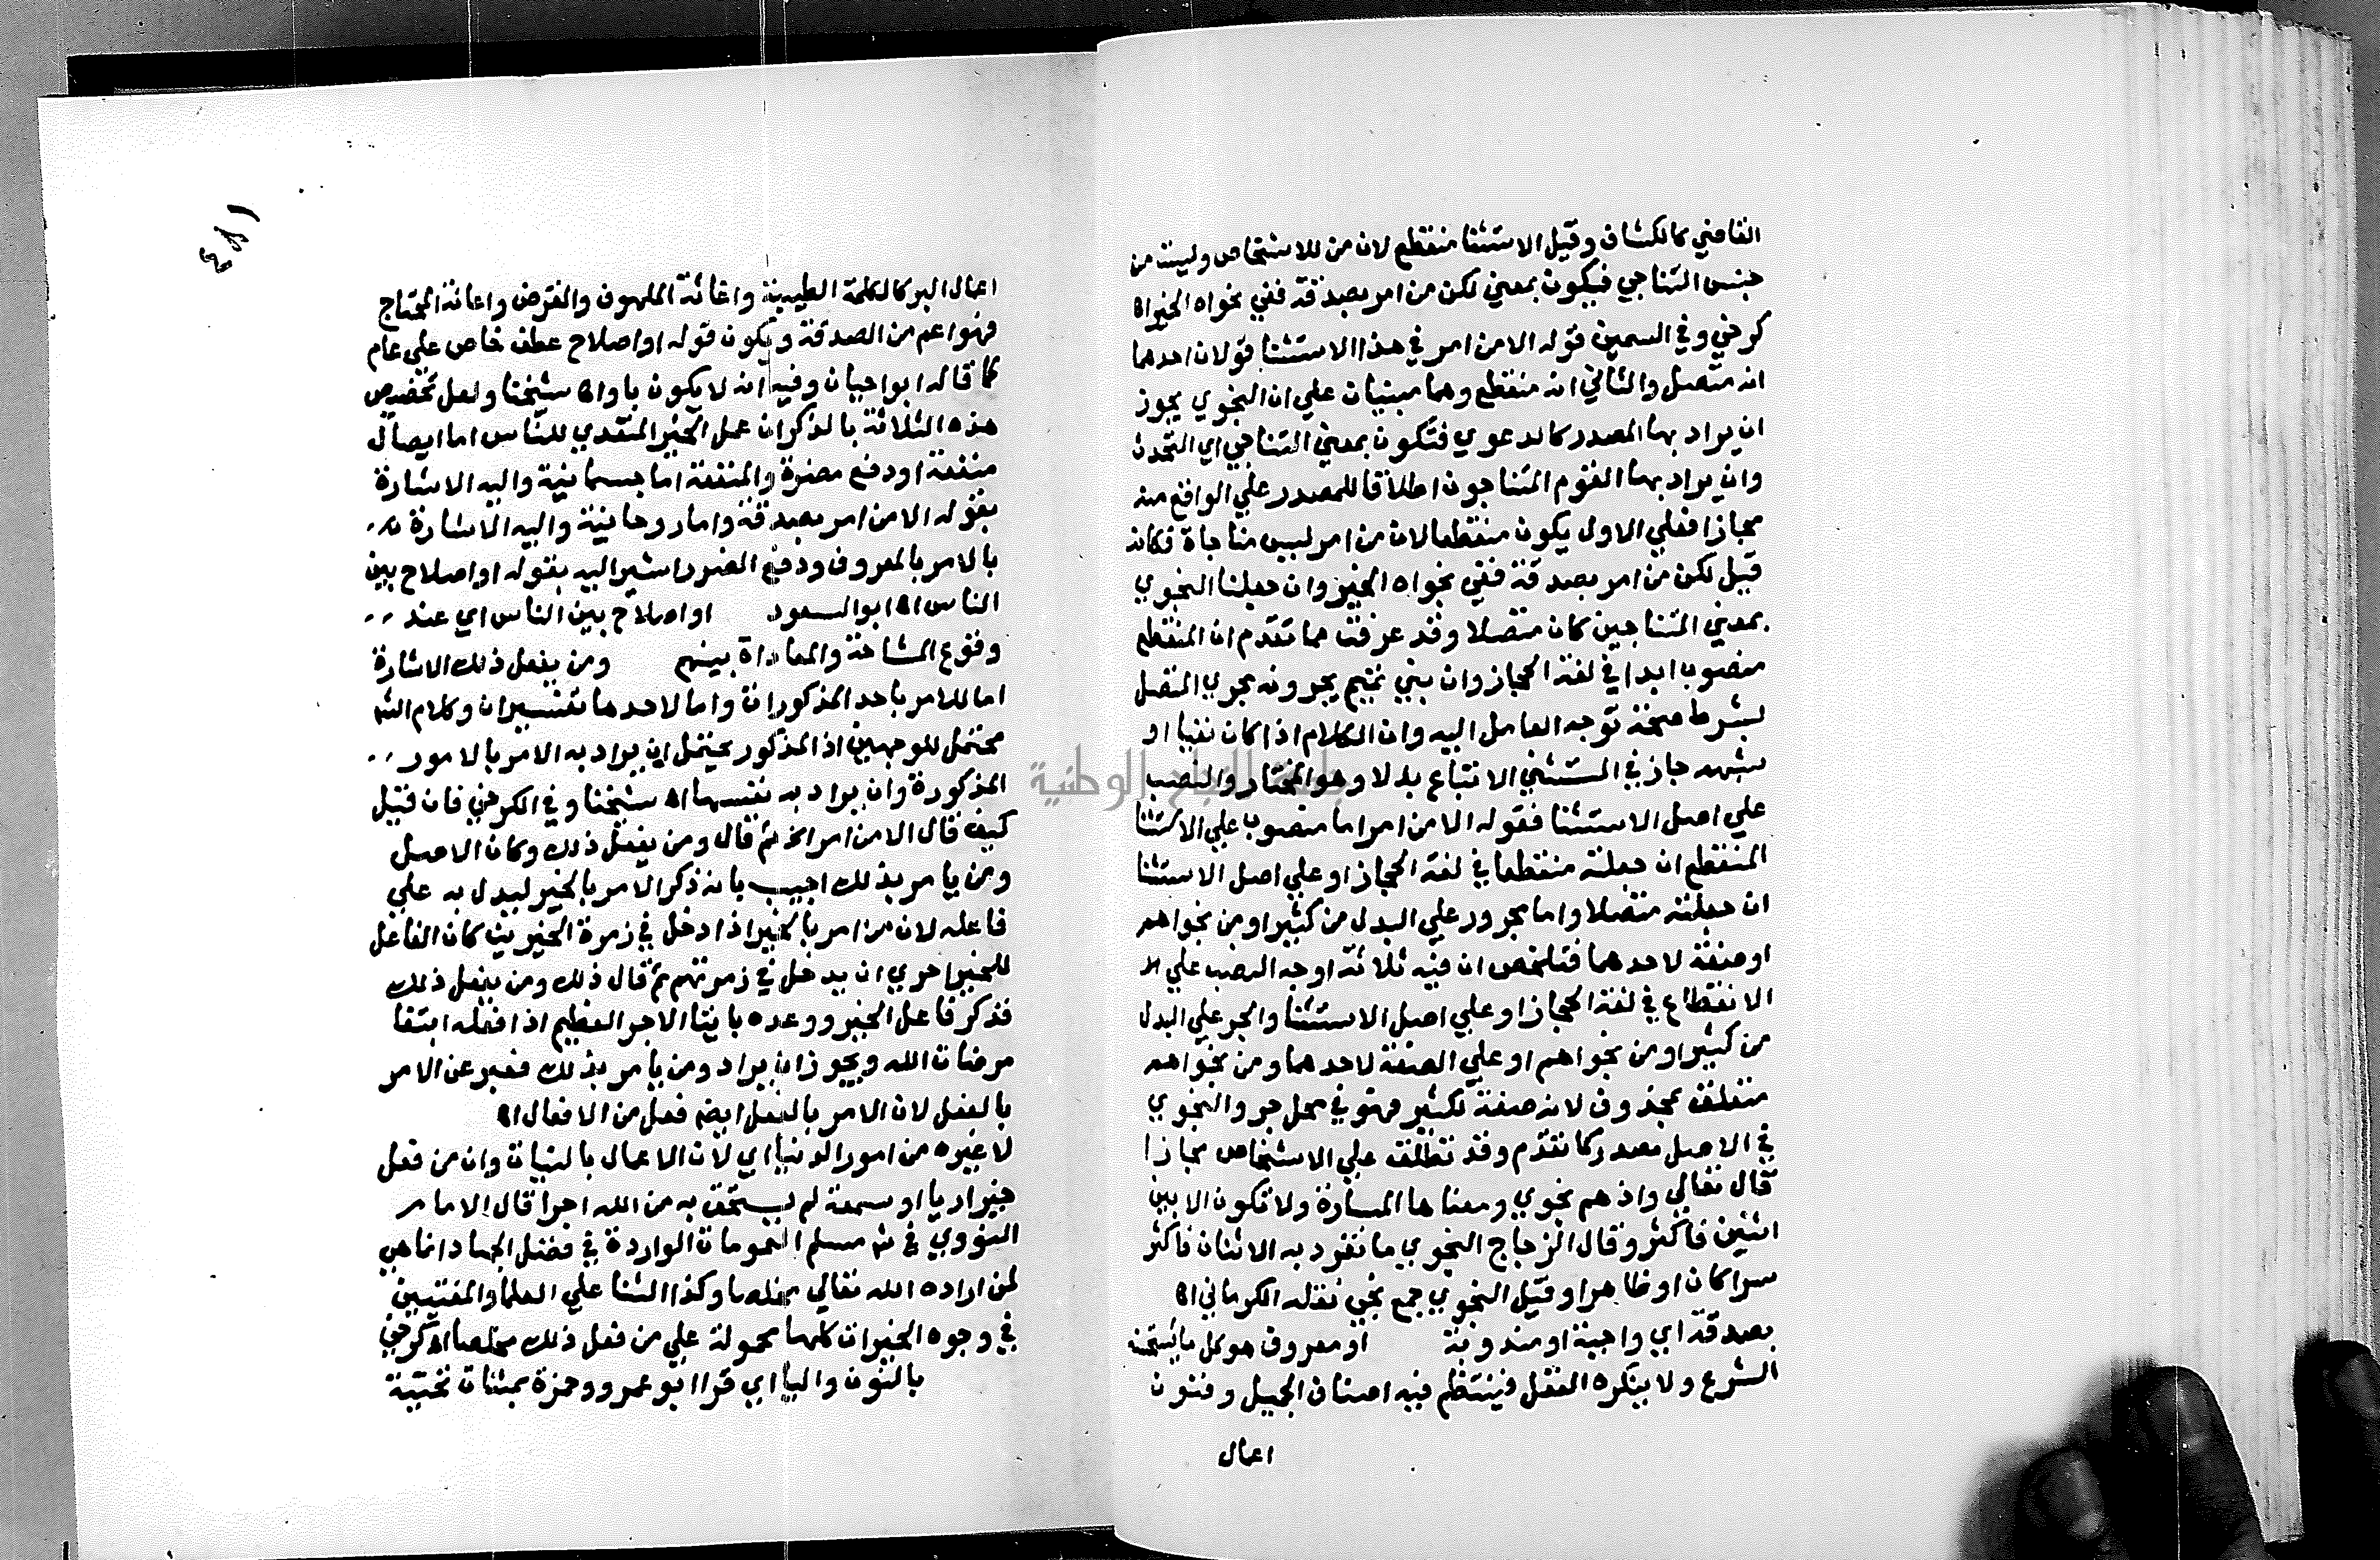 القاضي كالكشاف وقيل الاستثنا منقطع لان من للاشخاص وليست من
جنس التناجي فيكون بمعني لكن من امر بصدقة ففي نجواه الخير اه
كرخي وفي السمين قوله الا من امر في هذا الاستثنا قولان احدهما
انه متصل والثاني انه منقطع وهما مبنيان علي ان النجوي يجوز
ان يراد بها المصدر كالدعوي فتكون بمعني التناجي اي التحدث
وان يراد بها القوم المتناجون اطلاقا للمصدر علي الواقع منه
مجازا فعلي الاول يكون منقطعا لان من امر ليس مناجاة فكانه
قيل لكن من امر بصدقة ففي نجواه الخير وان جعلنا النجوي
بمعني المتناجين كان متصلا وقد عرفت مما تقدم ان المنقطع
منصوب ابدا في لغة الحجاز وان بني تميم يجرونه مجري المتصل
بشرط صحة توجه العامل اليه وان الكلام اذا كان نفيا او
شبهه جاز في المستثني الاتباع بدلا وهو المختار والنصب
علي اصل الاستثنا فقوله الا من امر اما منصوب علي الاستثنا
المنقطع ان جعلته منقطعا في لغة الحجاز او علي اصل الاستثنا
ان جعلته متصلا واما مجرور علي البدل من كثير او من نجواهم
او صفة لاحدهما فتلخص ان فيه ثلاثة اوجه النصب علي الا
الانقطاع في لغة الحجاز او علي اصل الاستثنا والجر علي البدل
من كثير او من نجواهم او علي الصفة لاحدهما ومن نجواهم
متعلق بمحذوف لانه صفة لكثير فهو في محل جر والنجوي
في الاصل مصدر كما تقدم وقد تطلق علي الاشخاص مجازا
قال تعالي واذ هم نجوي ومعناها المسارة ولا تكون الا بين
اثنين فاكثر وقال الزجاج النجوي ما تفرد به الاثنان فاكثر
سرا كان او ظاهرا وقيل النجوي جمع نجي نقله الكرماني اه
بصدقة اي واجبة او مندوبة او معروف هو كل ما يستحسنه
الشرع ولا ينكره العقل فينتظم فيه اصناف الجميل وفنون
اعمال
٤٨١
اعمال البر كالكلمة الطيبة واغاثة الملهوف والقرض واعانة المحتاج
فهو اعم من الصدقة ويكون قوله او اصلاح عطف خاص علي عام
كما قاله ابو احيان وفيه انه لا يكون باو اه شيخنا ولعل تخصيص
هذه الثلاثة بالذكر ان عمل الخير المتعدي للناس اما ايصال
منفعة او دفع مضرة والمنفعة اما جسمانية واليه الاشارة
بقوله الا من امر بصدقة واما روحانية واليه الاشارة
بالامر بالمعروف ودفع الضرر اشير اليه بقوله او اصلاح بين
الناس اه ابو السعود او اصلاح بين الناس اي عند
وقوع المشاحة والمعاداة بينهم ومن يفعل ذلك الاشارة
اما للامر باحد المذكورات واما لاحدها تفسيران وكلام الش
محتمل للوجهين اذ المذكور يحتمل ان يراد به الامر بالامور
المذكورة وان يراد به نفسها اه شيخنا وفي الكرخي فان قيل
كيف قال الا من امر الخ ثم قال ومن يفعل ذلك وكان الاصل
ومن يامر بذلك اجيب بانه ذكر الامر بالخير ليدل به علي
فاعله لان من امر بالخير اذا دخل في زمرة الخيرين كان الفاعل
للخير احري ان يدخل في زمرتهم ثم قال ذلك ومن يفعل ذلك
فذكر فاعل الخير ووعده بايتا الاجر العظيم اذا فعله ابتغا
مرضات الله ويجوز ان يراد ومن يامر بذلك فعبر عن الامر
بالفعل لان الامر بالفعل ايضا فعل من الافعال اه
لا غيره من امور الدنيا اي لان الاعمال بالنيات وان من فعل
خيرا ريا او سمعة لم يستحق به من الله اجرا قال الامام
النووي في ش مسلم العمومات الواردة في فضل الجهاد انما هي
لمن اراده الله تعالي مخلصا وكذا الثنا علي العلما والمفتيين
في وجوه الخيرات كلها محمولة علي من فعل ذلك مخلصا اه كرخي
بالنون واليا اي قرا ابو عمرو وحمزة بمثناة تحتية